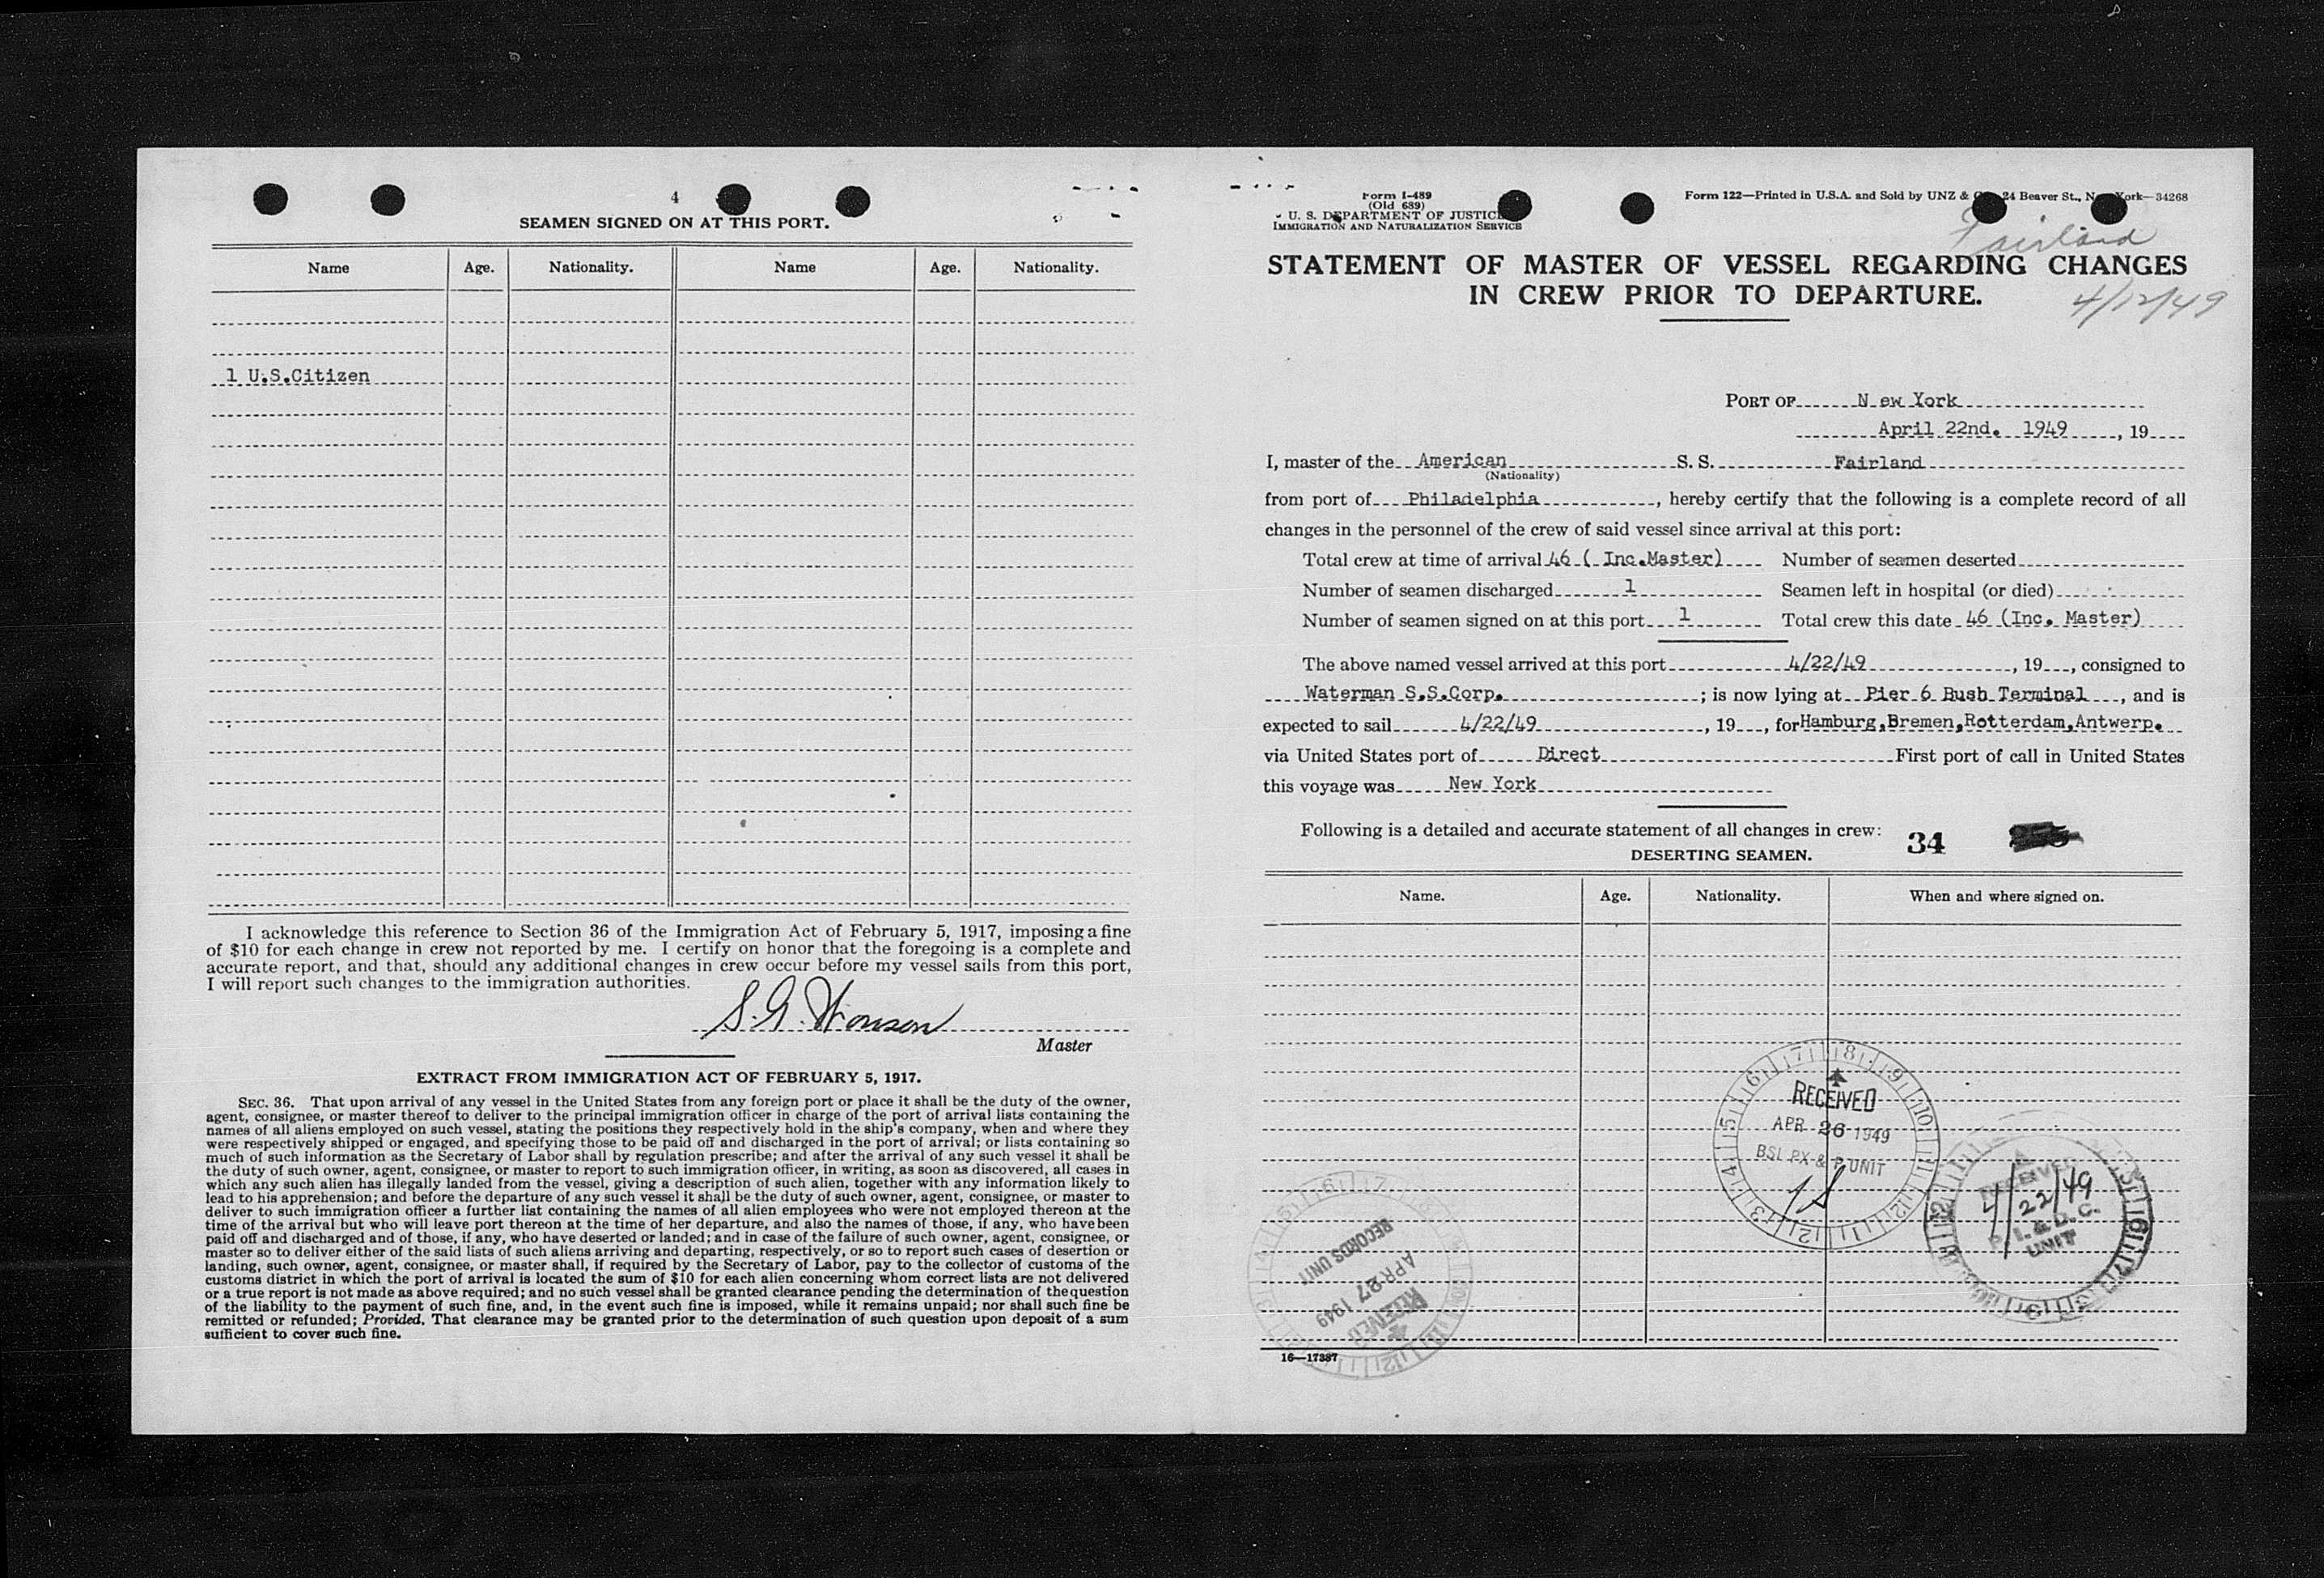 4
SEAMEN SIGNED ON AT THIS PORT.
Name Age. Nationality. Name Age. Nationality.
1 U.S.Citizen
I acknowledge this reference to Section 36 of the Immigration Act of February 5, 1917, imposing a fine
of $10 for each change in crew not reported by me. I certify on honor that the foregoing is a complete and
accurate report, and that, should any additional changes in crew occur before my vessel sails from this port,
I will report such changes to the immigration authorities.
S. G.
Master
EXTRACT FROM IMMIGRATION ACT OF FEBRUARY 5, 1917.
SEC. 36. That upon arrival of any vessel in the United States from any foreign port or place it shall be the duty of the owner,
agent, consignee, or master thereof to deliver to the principal immigration officer in charge of the port of arrival lists containing the
names of all aliens employed on such vessel, stating the positions they respectively hold in the ship's company, when and where they
were respectively shipped or engaged, and specifying those to be paid off and discharged in the port of arrival; or lists containing so
much of such information as the Secretary of Labor shall by regulation prescribe; and after the arrival of any such vessel it shall be
the duty of such owner, agent, consignee, or master to report to such immigration officer, in writing, as soon as discovered, all cases in
which any such alien has illegally landed from the vessel, giving a description of such alien, together with any information likely to
lead to his apprehension; and before the departure of any such vessel it shall be the duty of such owner, agent, consignee, or master to
deliver to such immigration officer a further list containing the names of all alien employees who were not employed thereon at the
time of the arrival but who will leave port thereon at the time of her departure, and also the names of those, if any, who have been
paid off and discharged and of those, if any, who have deserted or landed; and in case of the failure of such owner, agent, consignee, or
master so to deliver either of the said lists of such aliens arriving and departing, respectively, or so to report such cases of desertion or
landing, such owner, agent, consignee, or master shall, if required by the Secretary of Labor, pay to the collector of customs of the
customs district in which the port of arrival is located the sum of $10 for each alien concerning whom correct lists are not delivered
or a true report is not made as above required; and no such vessel shall be granted clearance pending the determination of the question
of the liability to the payment of such fine, and, in the event such fine is imposed, while it remains unpaid; nor shall such fine be
remitted or refunded; Provided, That clearance may be granted prior to the determination of such question upon deposit of a sum
sufficient to cover such fine.
Form I-489
(Old 689)
U. S. DEPARTMENT OF JUSTICE
IMMIGRATION AND NATURALIZATION SERVICE
Form 122—Printed in U.S.A. and Sold by UNZ & 24 Beaver St., New York—34268
Fairland
STATEMENT OF MASTER OF VESSEL REGARDING CHANGES
IN CREW PRIOR TO DEPARTURE.
4/12/49
PORT OF N ew York
April 22nd. 1949, 19
I, master of the American S. S. Fairland
(Nationality)
from port of Philadelphia, hereby certify that the following is a complete record of all
changes in the personnel of the crew of said vessel since arrival at this port:
Total crew at time of arrival 46 ( Inc.Master) Number of seamen deserted
Number of seamen discharged 1 Seamen left in hospital (or died)
Number of seamen signed on at this port 1 Total crew this date 46 (Inc. Master)
The above named vessel arrived at this port 4/22/49, 19, consigned to
Waterman S.S.Corp.; is now lying at Pier 6 Bush Terminal, and is
expected to sail 4/22/49, 19, for Hamburg,Bremen,Rotterdam,Antwerp.
via United States port of Direct First port of call in United States
this voyage was New York
Following is a detailed and accurate statement of all changes in crew:
34
DESERTING SEAMEN.
Name. Age. Nationality. When and where signed on.
RECEIVED
APR 26 1949
BSI PX & P UNIT
RECEIVED
4/22/49
P. I. & D. C.
UNIT
RECEIVED
APR 27 1949
RECORDS UNIT
16—17387